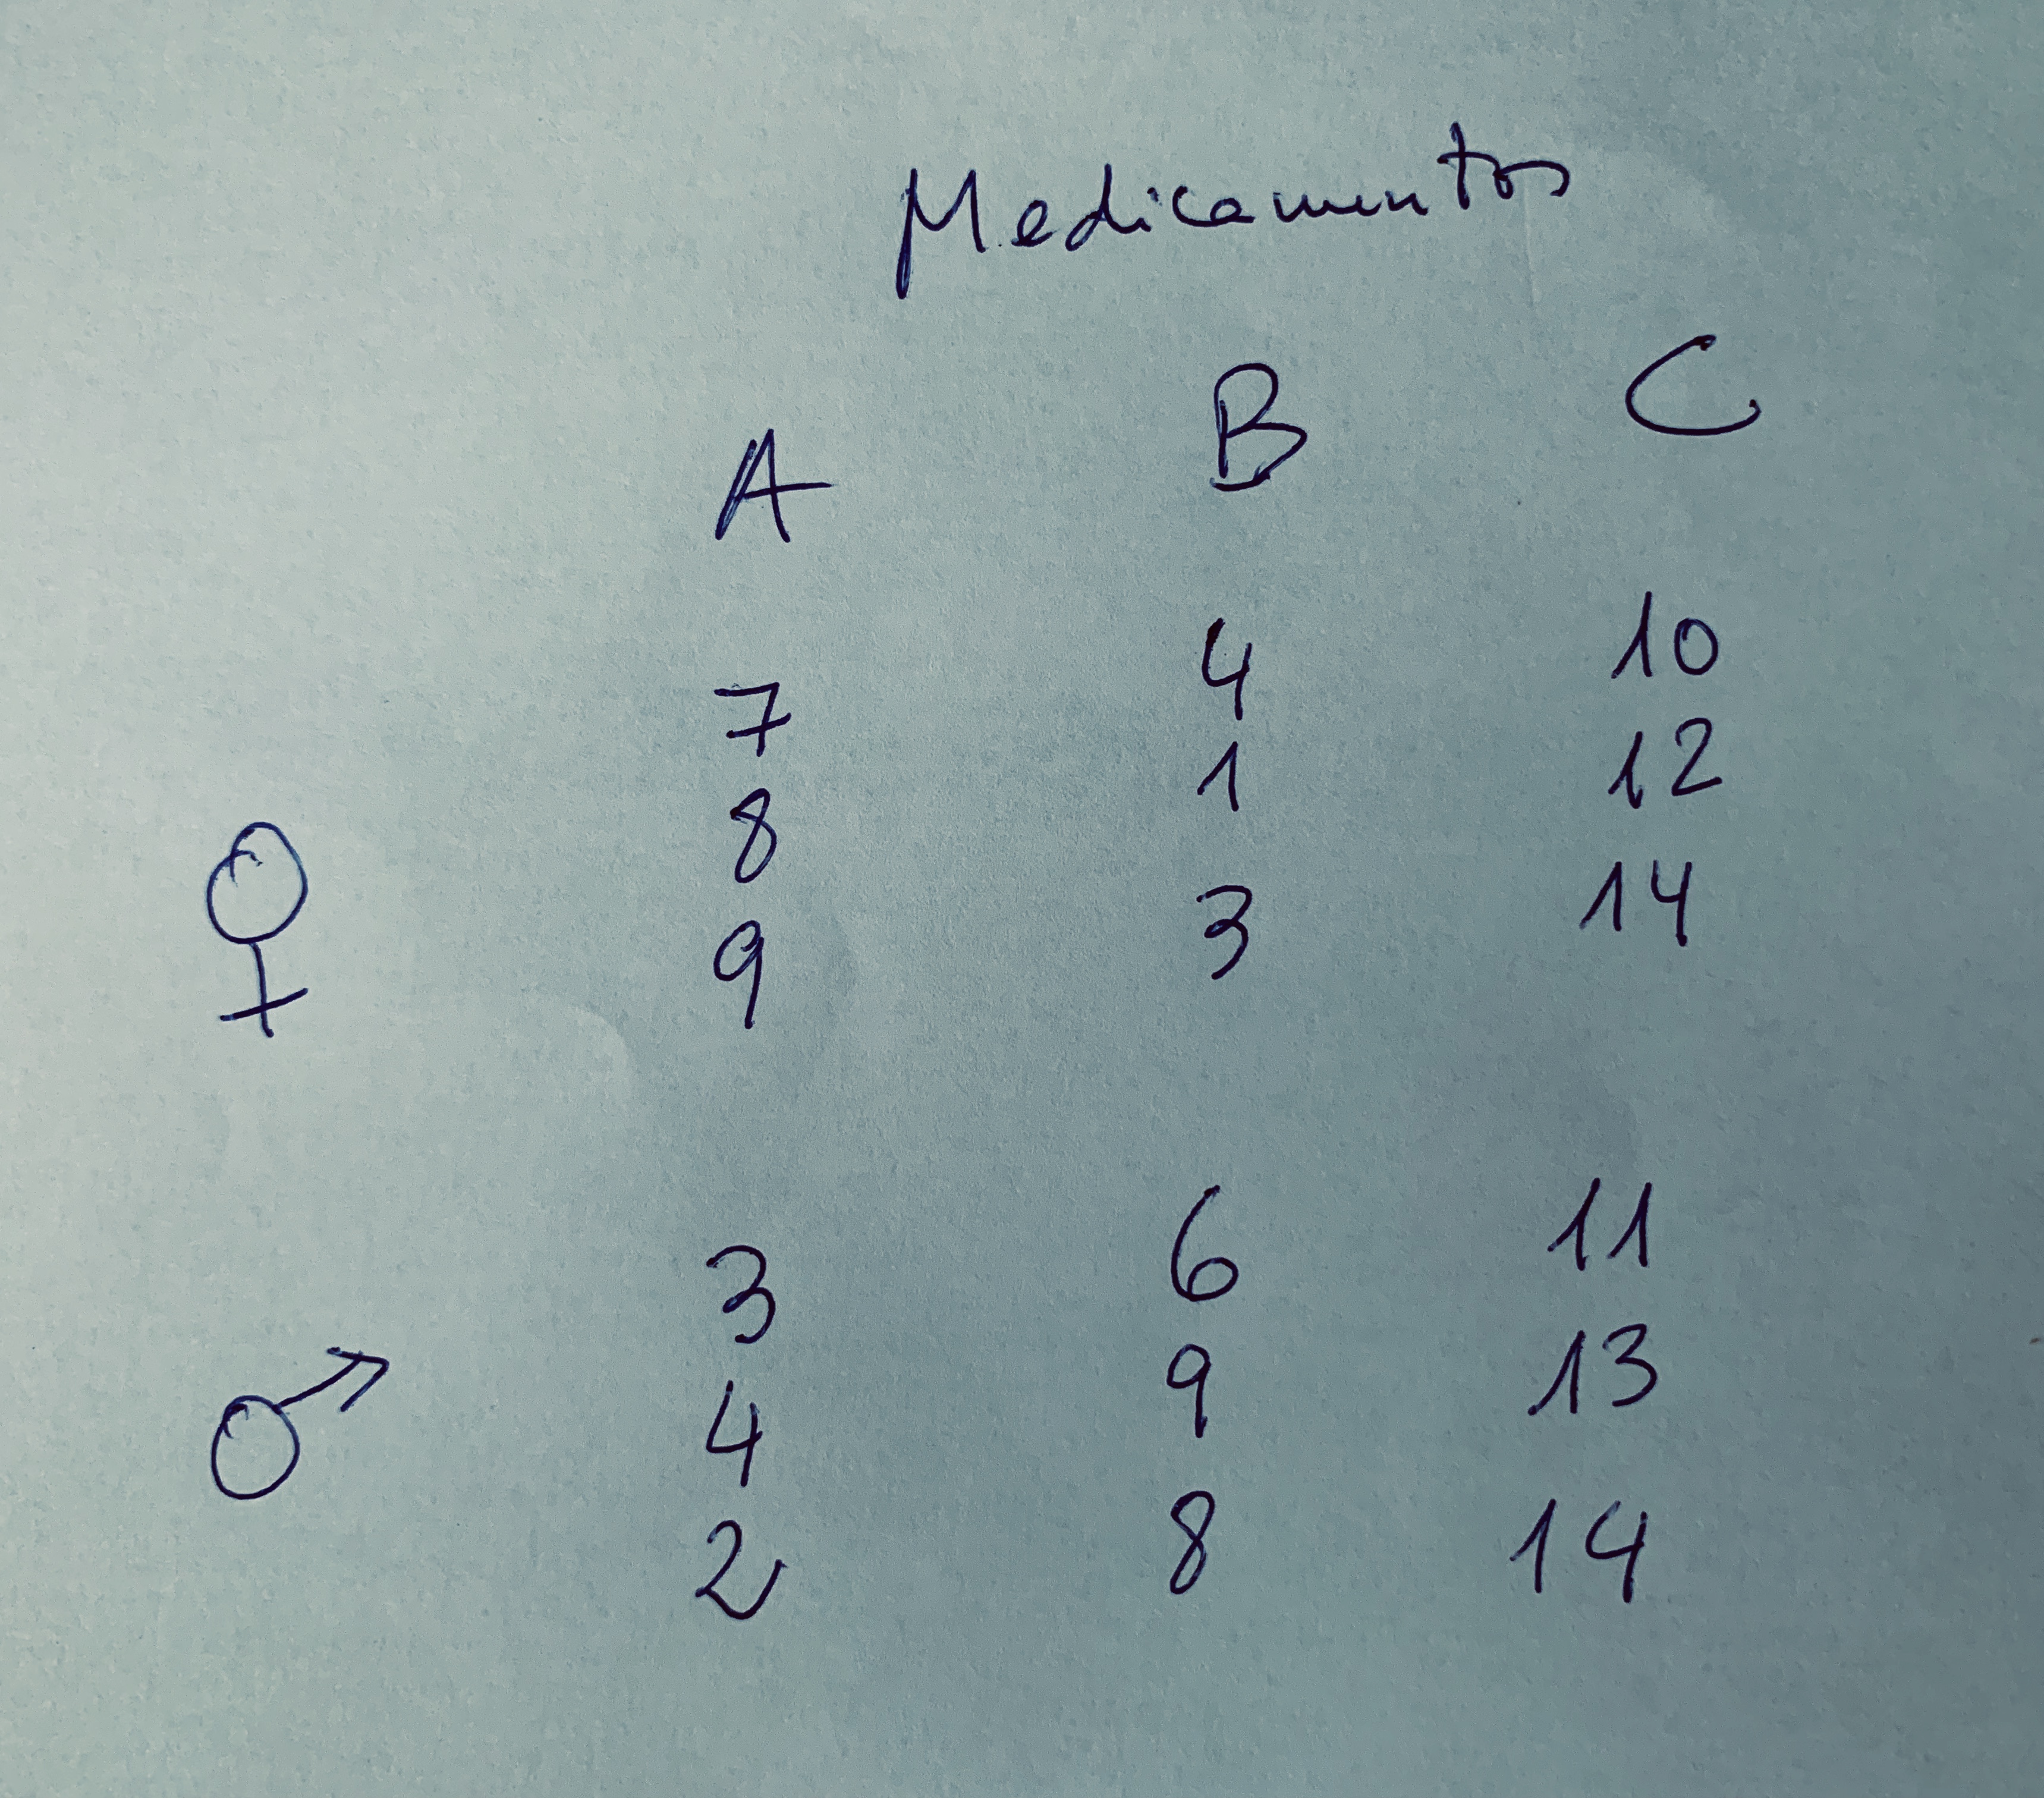 Medicamentos
A B C
7 4 10
8 1 12
♀ 9 3 14
3 6 11
♂ 4 9 13
2 8 14